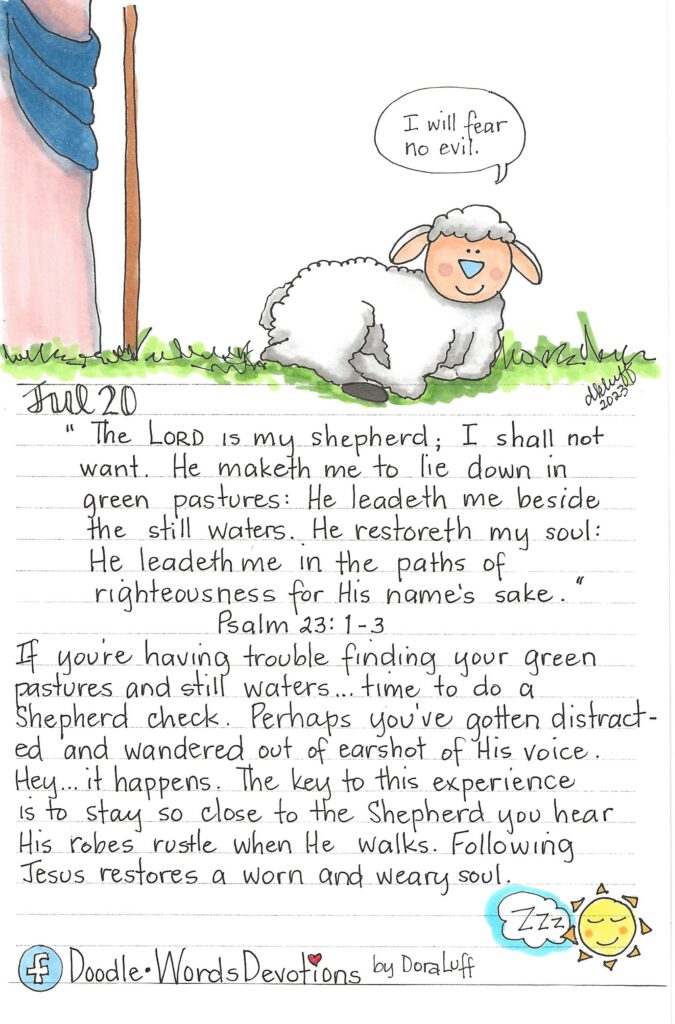 I will fear
no evil.
dkluff
2023
Jul 20
" The LORD is my shepherd; I shall not
want. He maketh me to lie down in
green pastures: He leadeth me beside
the still waters. He restoreth my soul:
He leadeth me in the paths of
righteousness for His name's sake. "
Psalm 23: 1-3
If you're having trouble finding your green
pastures and still waters... time to do a
Shepherd check. Perhaps you've gotten distract-
ed and wandered out of earshot of His voice.
Hey... it happens. The key to this experience
is to stay so close to the Shepherd you hear
His robes rustle when He walks. Following
Jesus restores a worn and weary soul.
Zzz
f Doodle•Words Devotions by Dora Luff